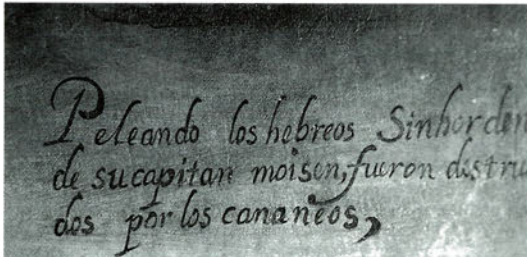 Peleando los hebreos Sinhorden
de sucapitan moisen, fueron distrui
dos por los cananeos,